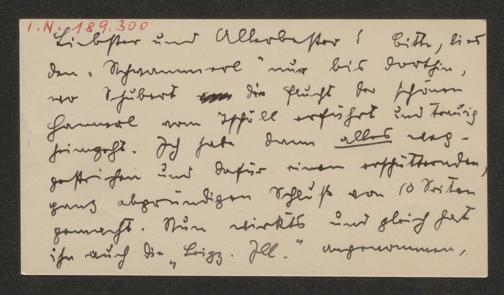 I.N. 189.300
Liebster und Allerbester! Bitte, lies
den „Schwammerl" nur bis dorthin,
wo Schubert die Flucht der schönen
Hannerl vom Tschöll erfährt und traurig
heimgeht. Ich habe dann alles weg-
gestrichen und dafür einen erschütternden,
ganz abgründigen Schluß von 10 Seiten
gemacht. Nun wirkts und gleich hat
ihn auch die „Leipz. Ill." angenommen,